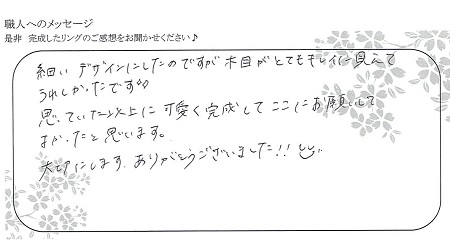 職人へのメッセージ
是非 完成したリングのご感想をお聞かせください♪
細いデザインにしたのですが木目がとてもキレイに見えて
うれしかったです
思っていた以上に可愛く完成してここにお願いして
よかったと思います。
大切にします。ありがとうございました!!